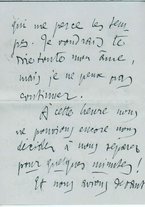 qui me perce les tem
pes. Je voudrais te
dire toute mon âme,
mais je ne peux pas
continuer.
A cette heure nous
ne pouvions encore nous
décider à nous séparer
pour quelques minutes !
Et nous avions devant